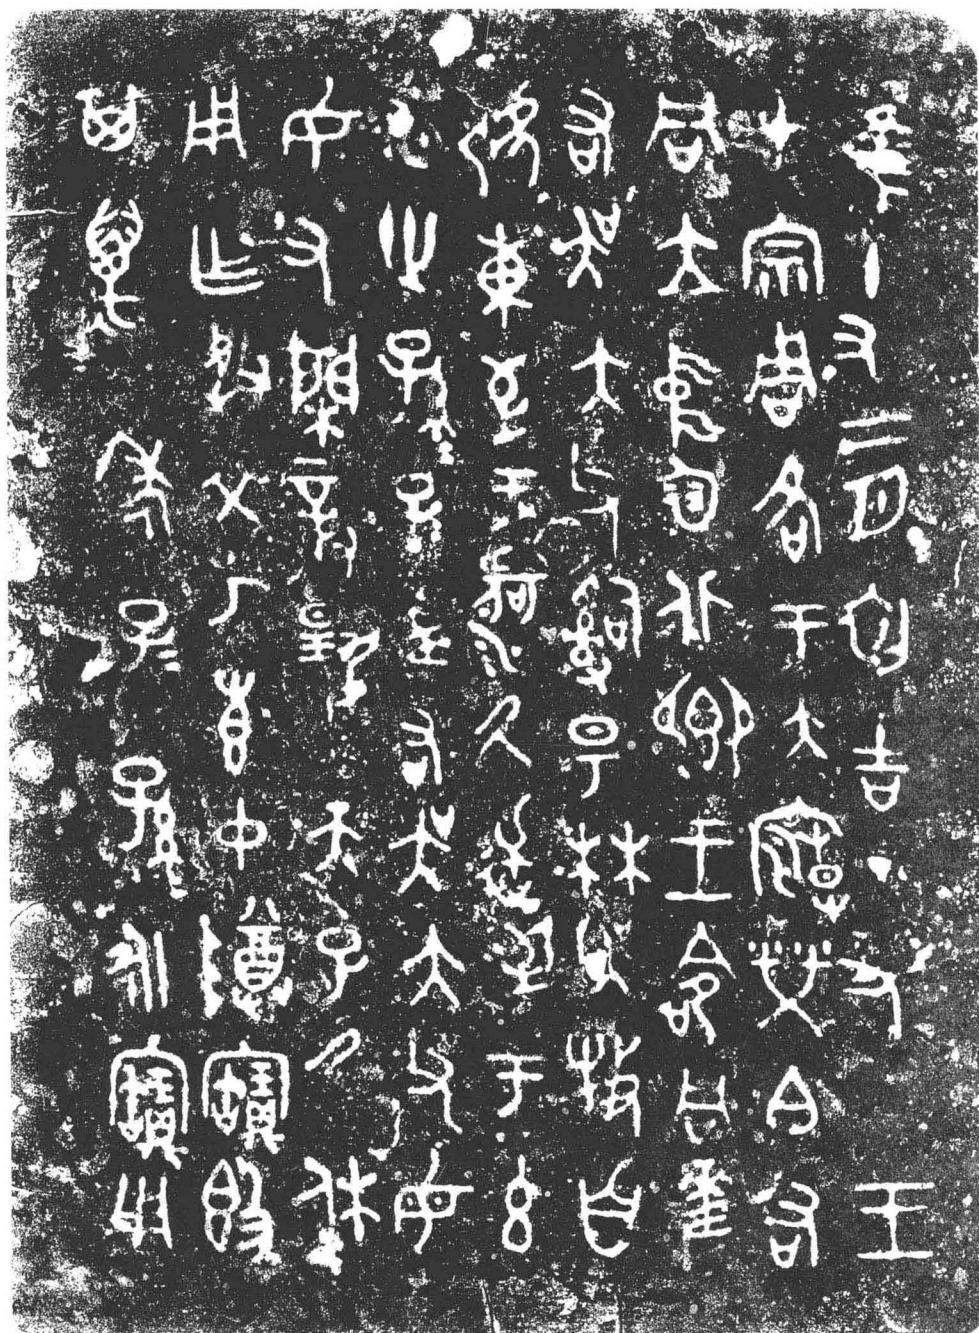 隹十又二月初吉丁丑王
才宗周各于大廟𤇾白右
同立中廷北鄉王命同𢀩
右吳大父𤔲昜林吳牧自
淲東至于河厥逆至于玄
水世孫孫子子𢀩右吳大父毋
女又閑對揚天子厥休
用乍朕文丂惠中尊寶簋
其萬年子子孫孫永寶用